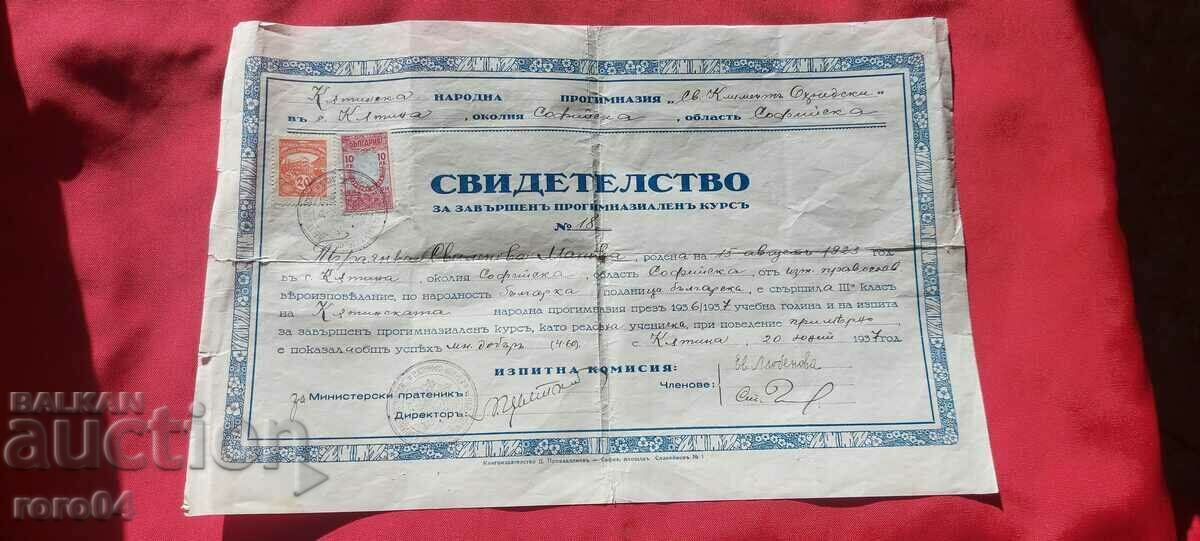 Клтинска НАРОДНА ПРОГИМНАЗИЯ „Св. Климентъ Охридски"
въ с. Клтина, околия Софийска, область Софийска
БЪЛГАРИЯ
10 10
СВИДЕТЕЛСТВО
ЗА ЗАВЪРШЕНЪ ПРОГИМНАЗИАЛЕНЪ КУРСЪ
№ 18
родена на 15 августъ 1923 год.
въ с. Клтина, околия Софийска, область Софийска, отъ изт. православ
вѣроизповѣдание, по народность българка, поданица българска, е свършила III класъ
на Клтинската народна прогимназия презъ 1936/1937 учебна година и на изпита
за завършенъ прогимназиаленъ курсъ, като редовна ученичка, при поведение примѣрно,
е показала общъ успѣхъ мн. добъръ (4.60). с. Клтина, 20 юний 1937 год.
ИЗПИТНА КОМИСИЯ:
за Министерски пратеникъ:
Директоръ:
Членове:
Ев. Любенова
Ст.
София, площадъ Славейковъ № 1
BALKAN
auction
roro04